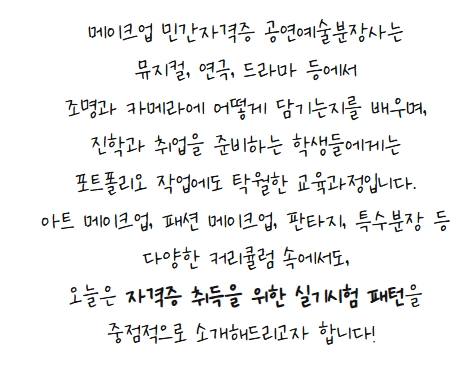 메이크업 민간자격증 공연예술분장사는
뮤지컬, 연극, 드라마 등에서
조명과 카메라에 어떻게 담기는지를 배우며,
진학과 취업을 준비하는 학생들에게는
포트폴리오 작업에도 탁월한 교육과정입니다.
아트 메이크업, 패션 메이크업, 판타지, 특수분장 등
다양한 커리큘럼 속에서도,
오늘은 자격증 취득을 위한 실기시험 패턴을
중점적으로 소개해드리고자 합니다!